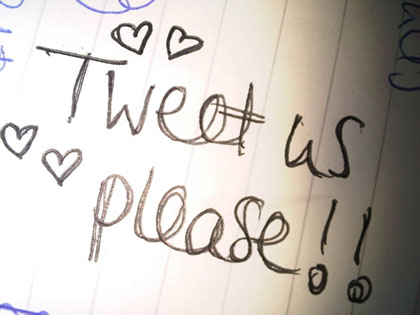 Tweet us
please!!